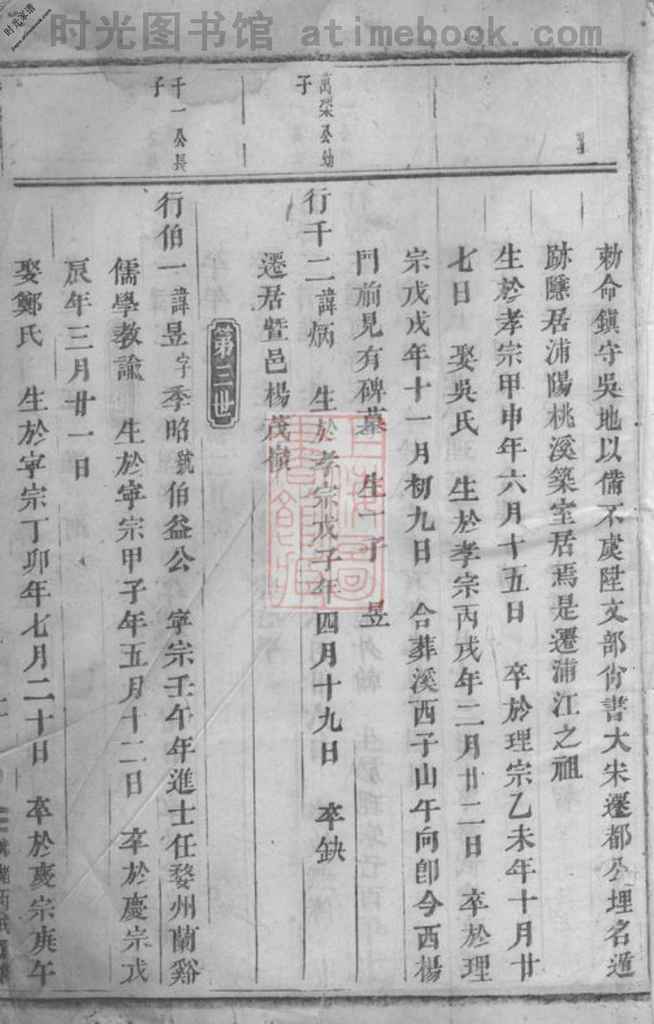 时光图书馆 atimebook.com
时光家谱
www.atimebook.com
勅命鎮守吳地以備不虞陞文部尙書大宋遷都公埋名遁
跡隱居浦陽桃溪築室居焉是遷浦江之祖
生於孝宗甲申年六月十五日 卒於理宗乙未年十月廿
七日 娶吳氏 生於孝宗丙戌年二月廿二日 卒於理
宗戊戌年十一月初九日 合葬溪西子山午向卽今西楊
門前見有碑墓 生一子 昱
萬榮公幼
子
行千二諱炳 生於孝宗戊子年四月十九日 卒缺
遷居暨邑楊茂嶺
第三世
千一公長
子
行伯一諱昱字季昭號伯益公 寧宗壬午年進士任婺州蘭谿
儒學教諭 生於寧宗甲子年五月十二日 卒於慶宗戊
辰年三月廿一日
娶鄭氏 生於寧宗丁卯年七月二十日 卒於慶宗庚午